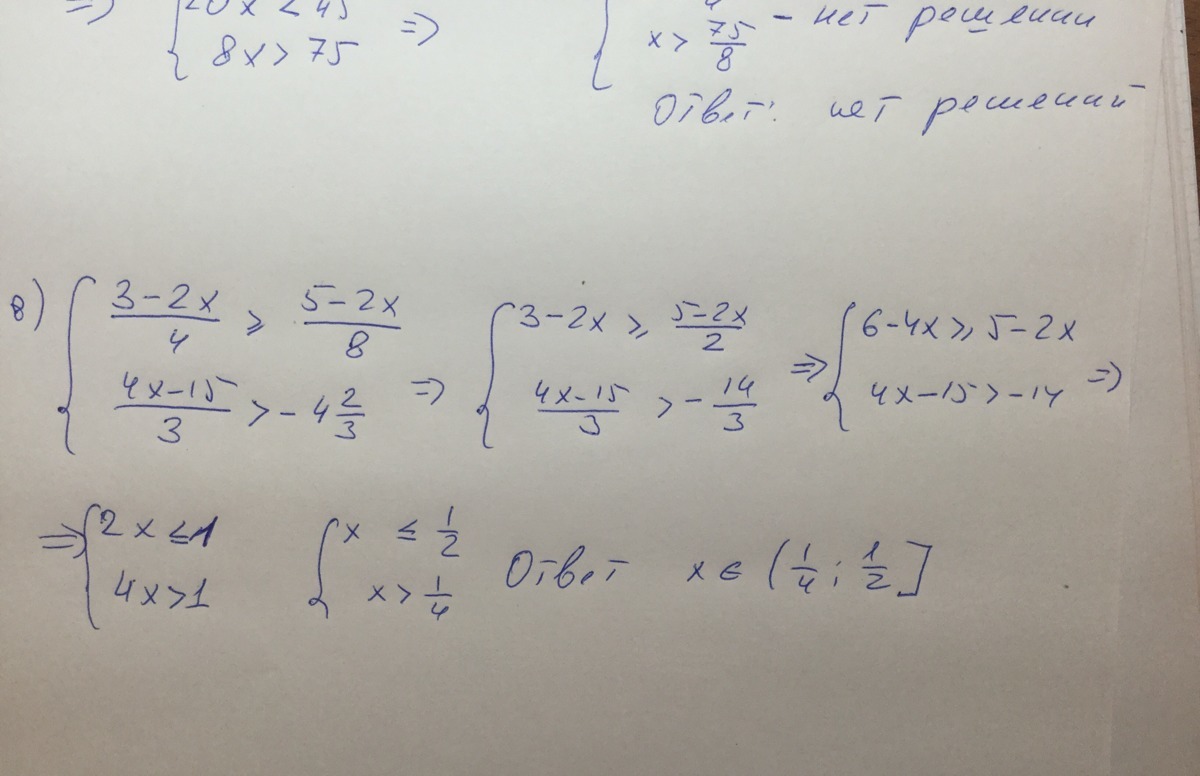 => { 20x < 45
8x > 75 =>
{ x > 75/8 - нет решений
Ответ: нет решений
в) { (3-2x)/4 ⩾ (5-2x)/8
(4x-15)/3 > -4 2/3 =>
{ 3-2x ⩾ (5-2x)/2
(4x-15)/3 > -14/3
=> { 6-4x ⩾ 5-2x
4x-15 > -14 =>
=> { 2x ≤ 1
4x > 1
{ x ≤ 1/2
x > 1/4
Ответ x ∈ (1/4; 1/2]